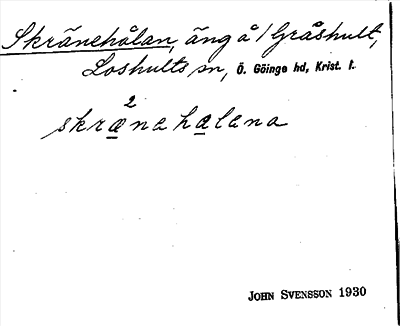 Skrånehålan, äng å / Gråshult,
Loshults sn, Ö. Göinge hd, Krist. l.
2
skrænehalana
JOHN SVENSSON 1930